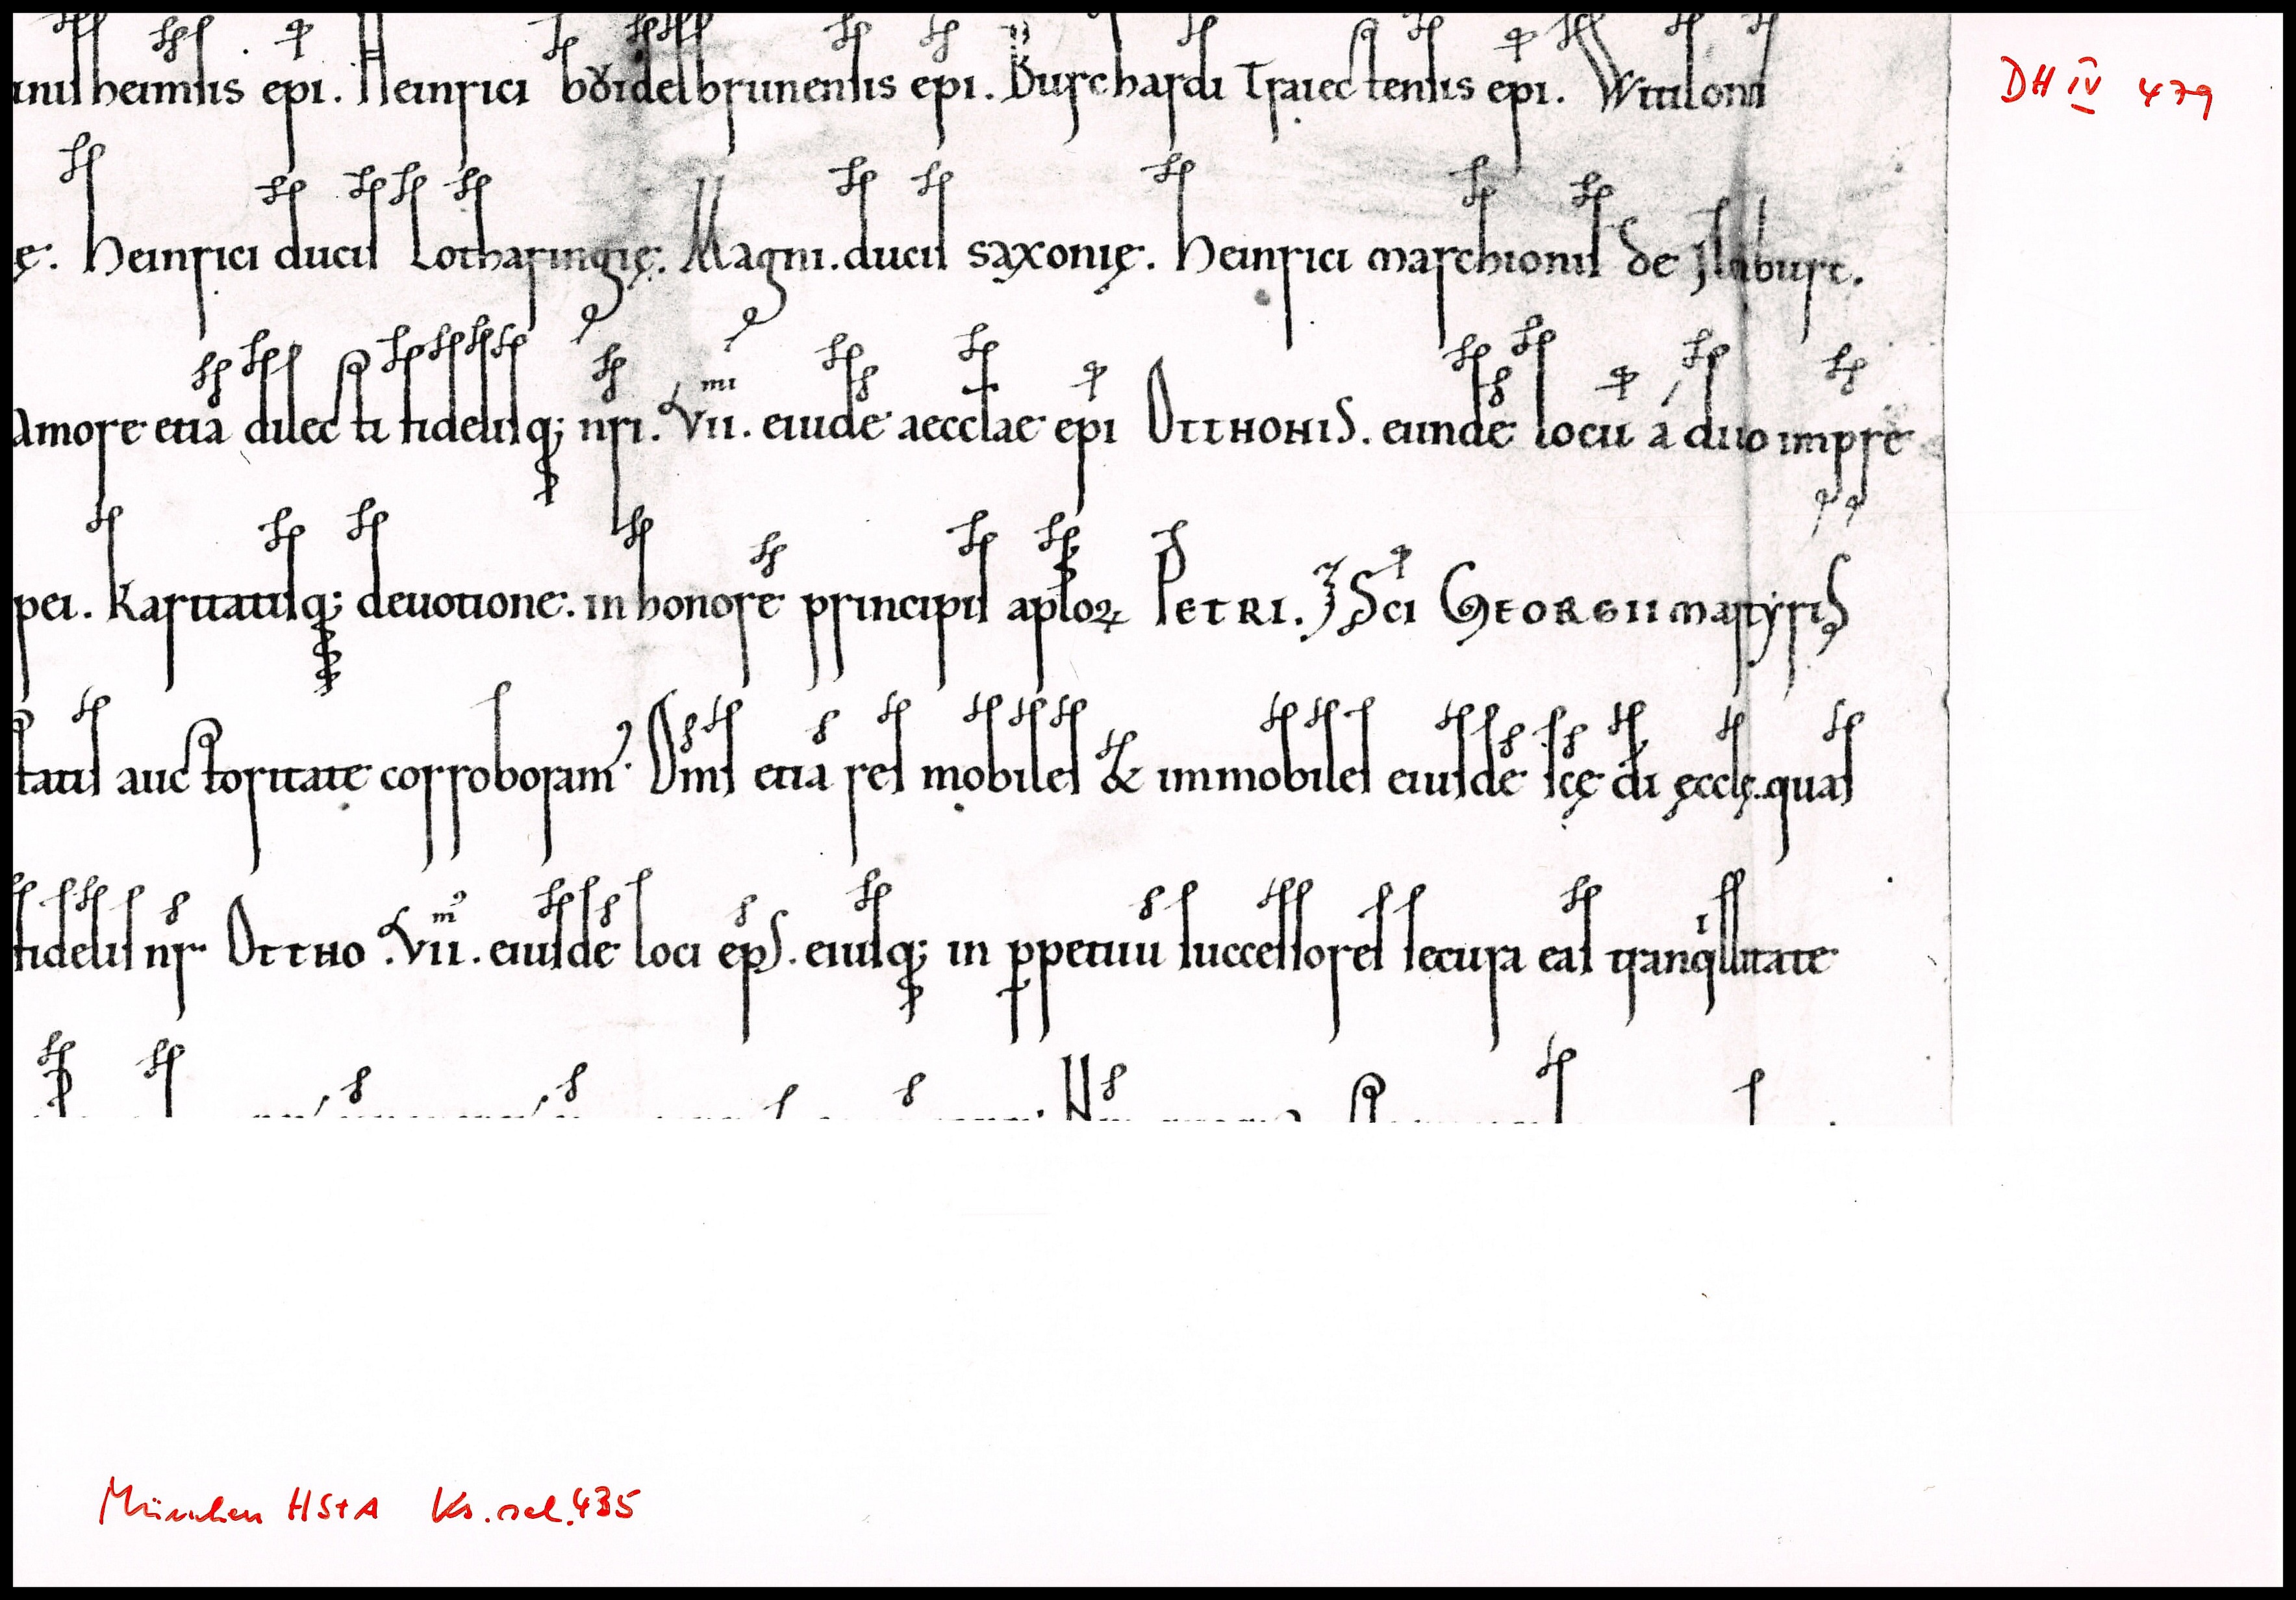 DH IV 479
inisheimensis epi. Heinrici boidelbrunensis epi. Burchardi Traiectensis epi. Wtiloni
ę. Heinrici ducis Lotharingię. Magni. ducis saxonię. Heinrici marchionis de Isinburc.
amore etiā dilecti fidelisq; nr̄i. VII.mi eiusdē aecclae ep̄i OTTHONIS. eundē locū a duo impre
pei. Karitatisq; deuotione. in honorē principis aplōꝝ PETRI. ⁊ Sc̄i GEORGII martyris
tatis auctoritate corroboram᾽. Om̄s etiā res mobiles & immobiles eiusdē sc̄ę dī ęcclę. quas
fidelis nr̄ OTTHO VII.m᾽ eiusdē loci ep̄s. eiusq; in ꝑpetuū successores secura eas tranqͥllitate
München HStA Ks. sel. 435